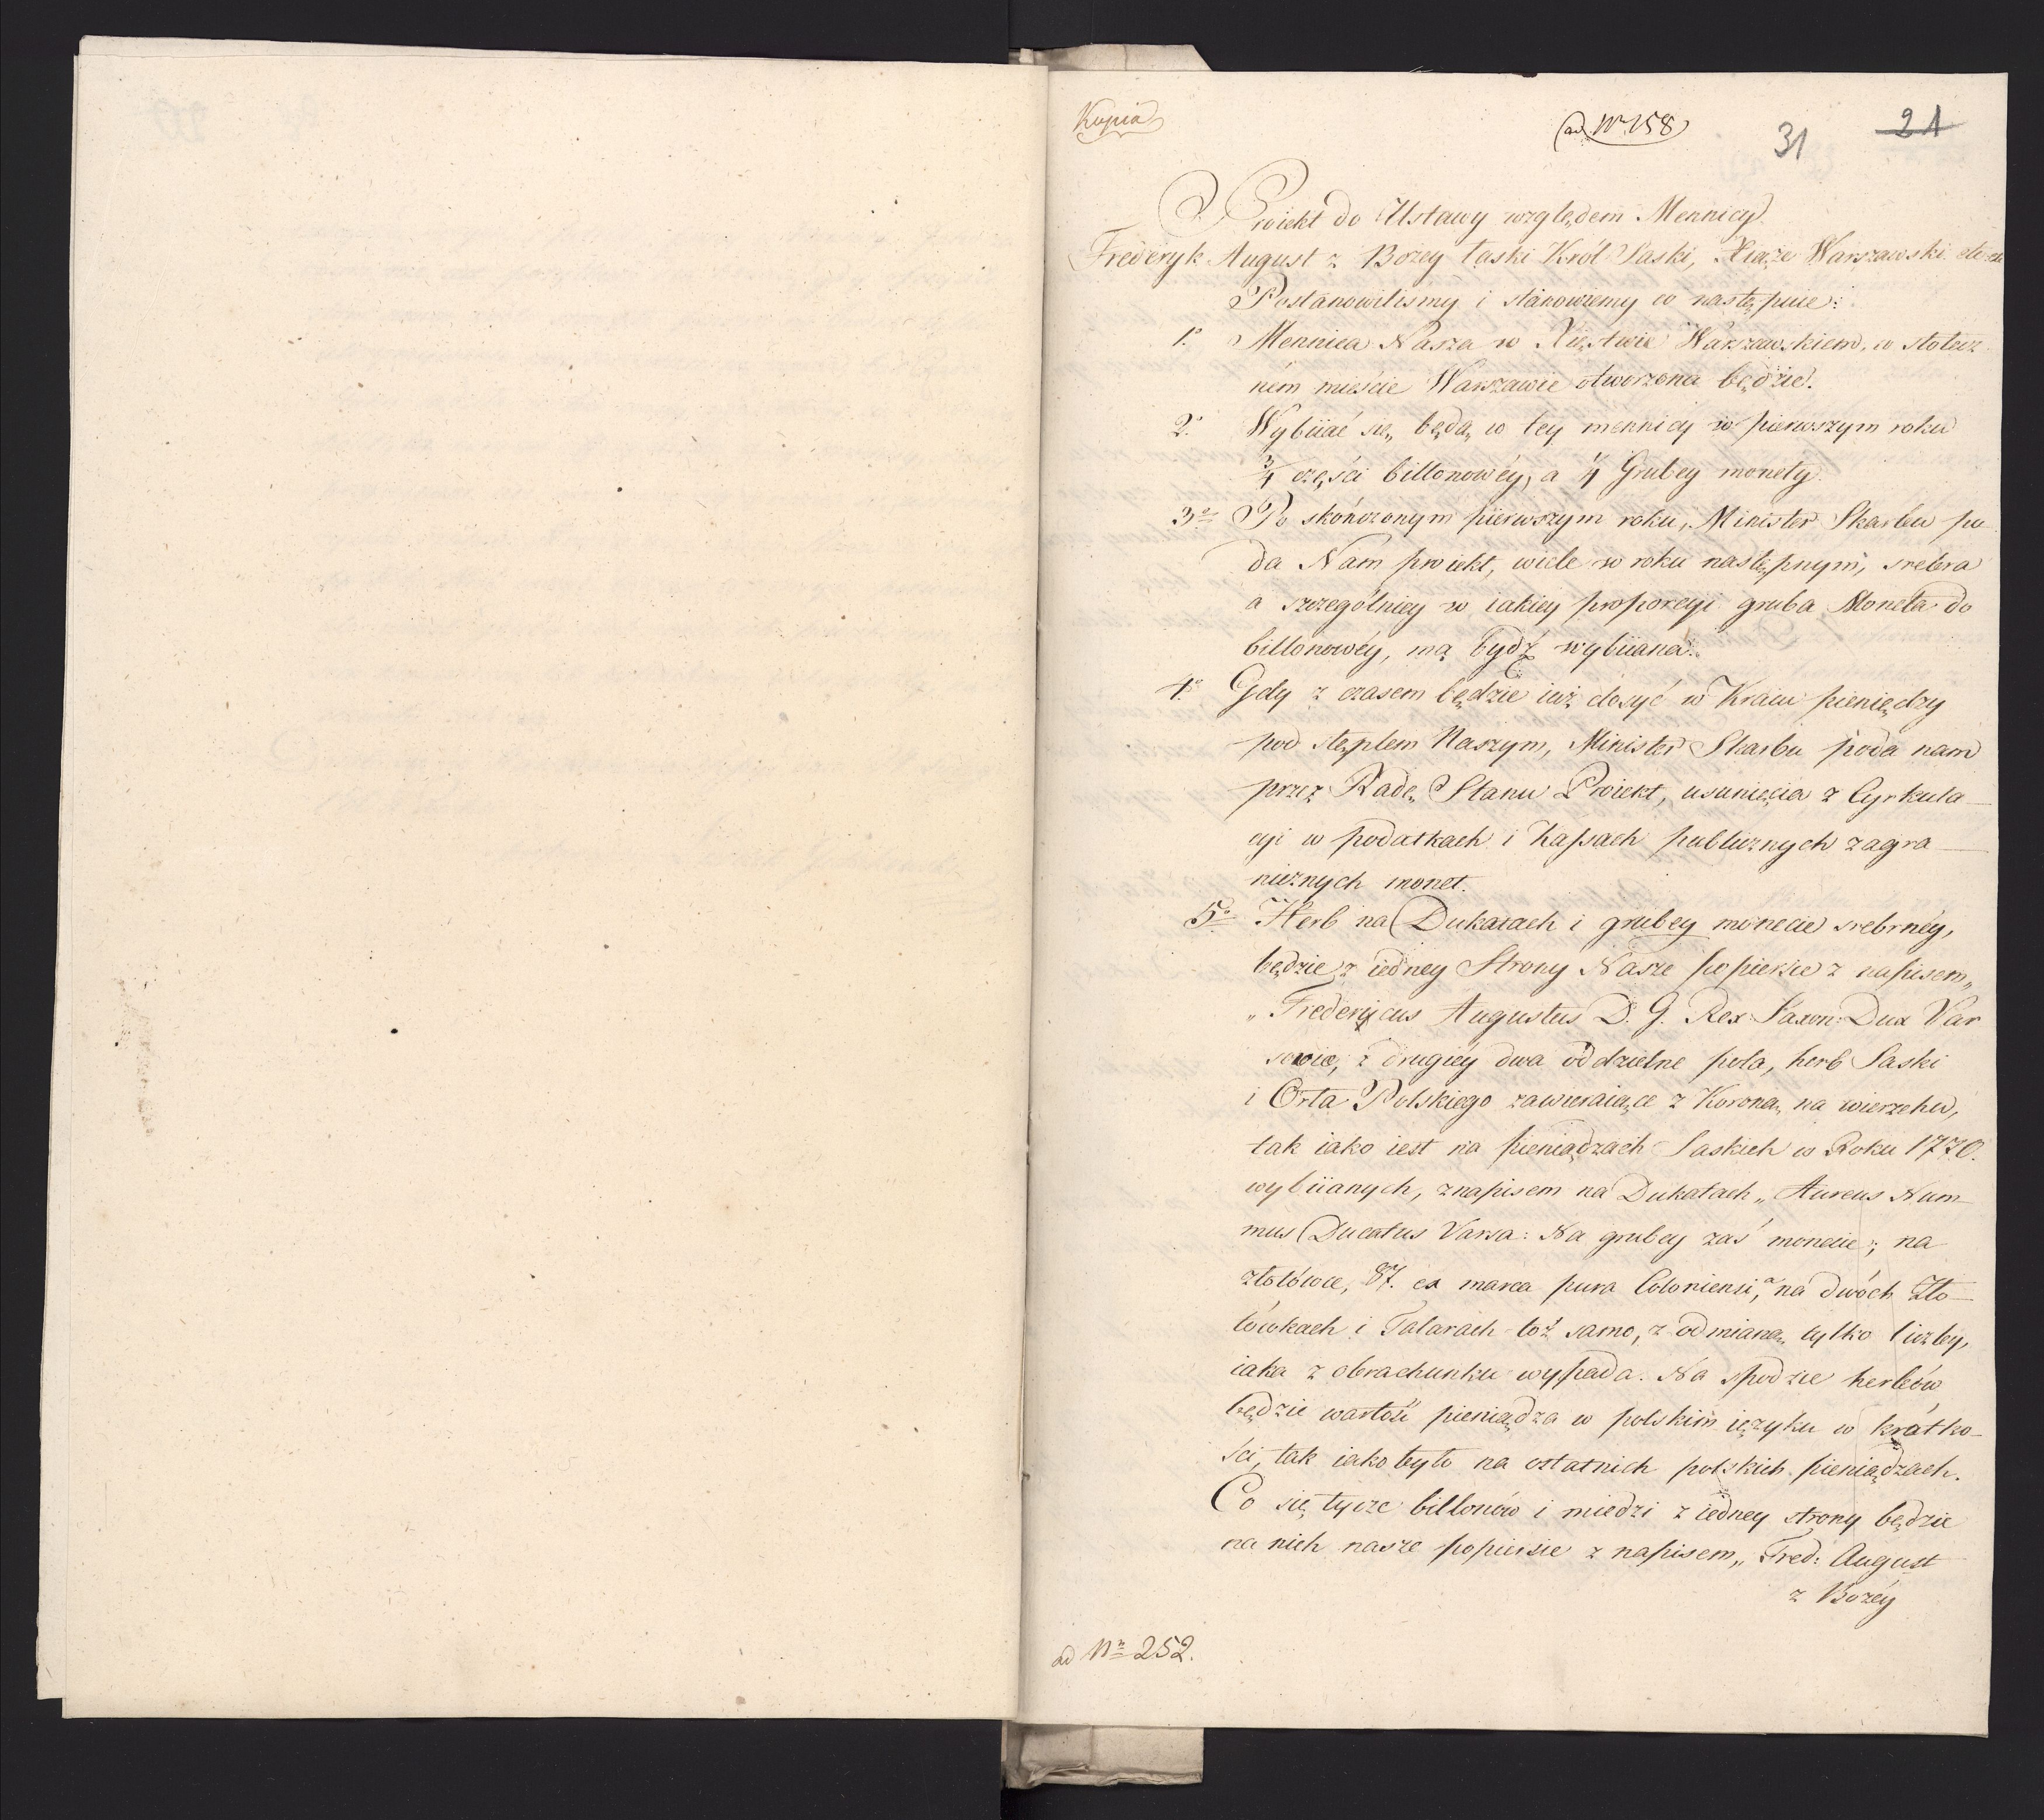 Kopia
ad Nr 158
31
21
Proiekt do Ustawy względem Mennicy.
Frederyk August z Bożey łaski Król Saski, Xiąże Warszawski etc etc
Postanowiliśmy i stanowiemy co następuie:
1.o Mennica Nasza w Xięstwie Warszawskiem, w stołecz
nem mieście Warszawie otworzona będzie.
2.o Wybiiać się będą w tey mennicy w pierwszym roku
3/4 części billonowéy, a 1/4 Grubey monety.
3o Po skończonym pierwszym roku, Minister Skarbu po
da Nam proiekt, wiele w roku następnym, srebra
a szczególniey w iakiey proporcyi gruba Moneta do
billonowéy, ma bydź wybiiana.
4.o Gdy z czasem będzie iuż dosyć w Kraiu pieniędzy
pod stęplem Naszym, Minister Skarbu poda nam
przez Radę Stanu Proiekt, usunięcia z Cyrkula
cyi w podatkach i Kassach publicznych zagra
nicznych monet.
5o Herb na Dukatach i grubey monecie srebrnéy,
będzie z iedney Strony Nasze popiersie z napisem„
„Fredericus Augustus D. G. Rex Saxon: Dux Var
soviæ, z drugiéy dwa oddzielne pola, herb Saski
i Orła Polskiego zawieraiące z Koroną na wierzchu,
tak iako iest na pieniądzach Saskich w Roku 1770.
wybiianych, z napisem na Dukatach „Aureus Num
mus Ducatus Varsa: Na grubey zaś monecie; na
złotówce, 87. ex marca pura Coloniensi,a na dwóch Zło
tówkach i Talarach toż samo, z odmianą tylko liczby,
iaka z obrachunku wypada. Na spodzie herbów
będzie wartość pieniądza w polskim ięzyku w krótko
ści, tak iako było na ostatnich polskich pieniądzach.
Co się tycze billonów i miedzi z iedney strony będzie
na nich nasze popiersie z napisem„ Fred: August
z Bożéy
ad Nr 252.